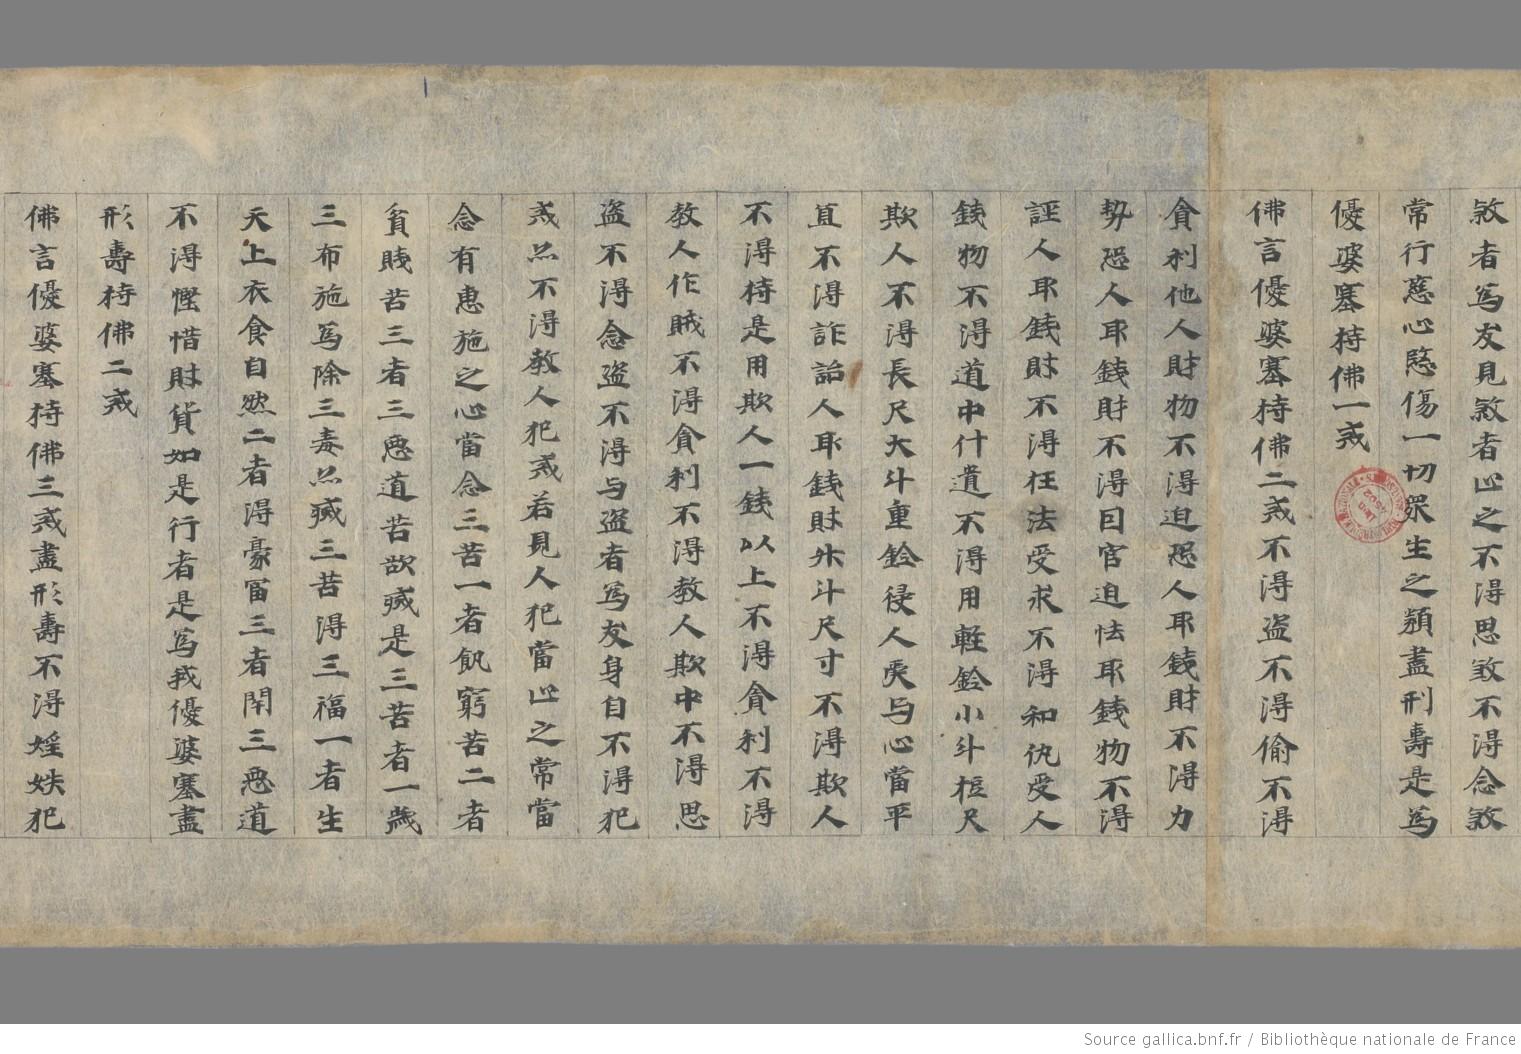 煞者為友見煞者止之不得思煞不得念煞
常行慈心愍傷一切眾生之類盡刑壽是為
優婆塞持佛一戒
佛言優婆塞持佛二戒不得盜不得偷不得
貪利他人財物不得迫恐人取錢財不得力
勢恐人取錢財不得因官迫怯取錢物不得
誣人取錢財不得枉法受求不得和仇受人
錢物不得道中什遺不得用輕秤小斗短尺
欺人不得長尺大斗重秤侵人更与心當平
直不得詐詒人取錢財升斗尺寸不得欺人
不得持是用欺人一錢以上不得貪利不得
教人作賊不得貪利不得教人欺中不得思
盜不得念盜不得与盜者為友身自不得犯
戒亦不得教人犯戒若見人犯當止之常當
念有惠施之心當念三苦一者飢窮苦二者
貧賤苦三者三惡道苦欲滅是三苦者一歲
三布施為除三毒亦滅三苦得三福一者生
天上衣食自然二者得豪富三者閇三惡道
不得慳惜財貨如是行者是為我優婆塞盡
形壽持佛二戒
佛言優婆塞持佛三戒盡形壽不得婬妷犯
Source gallica.bnf.fr / Bibliothèque nationale de France